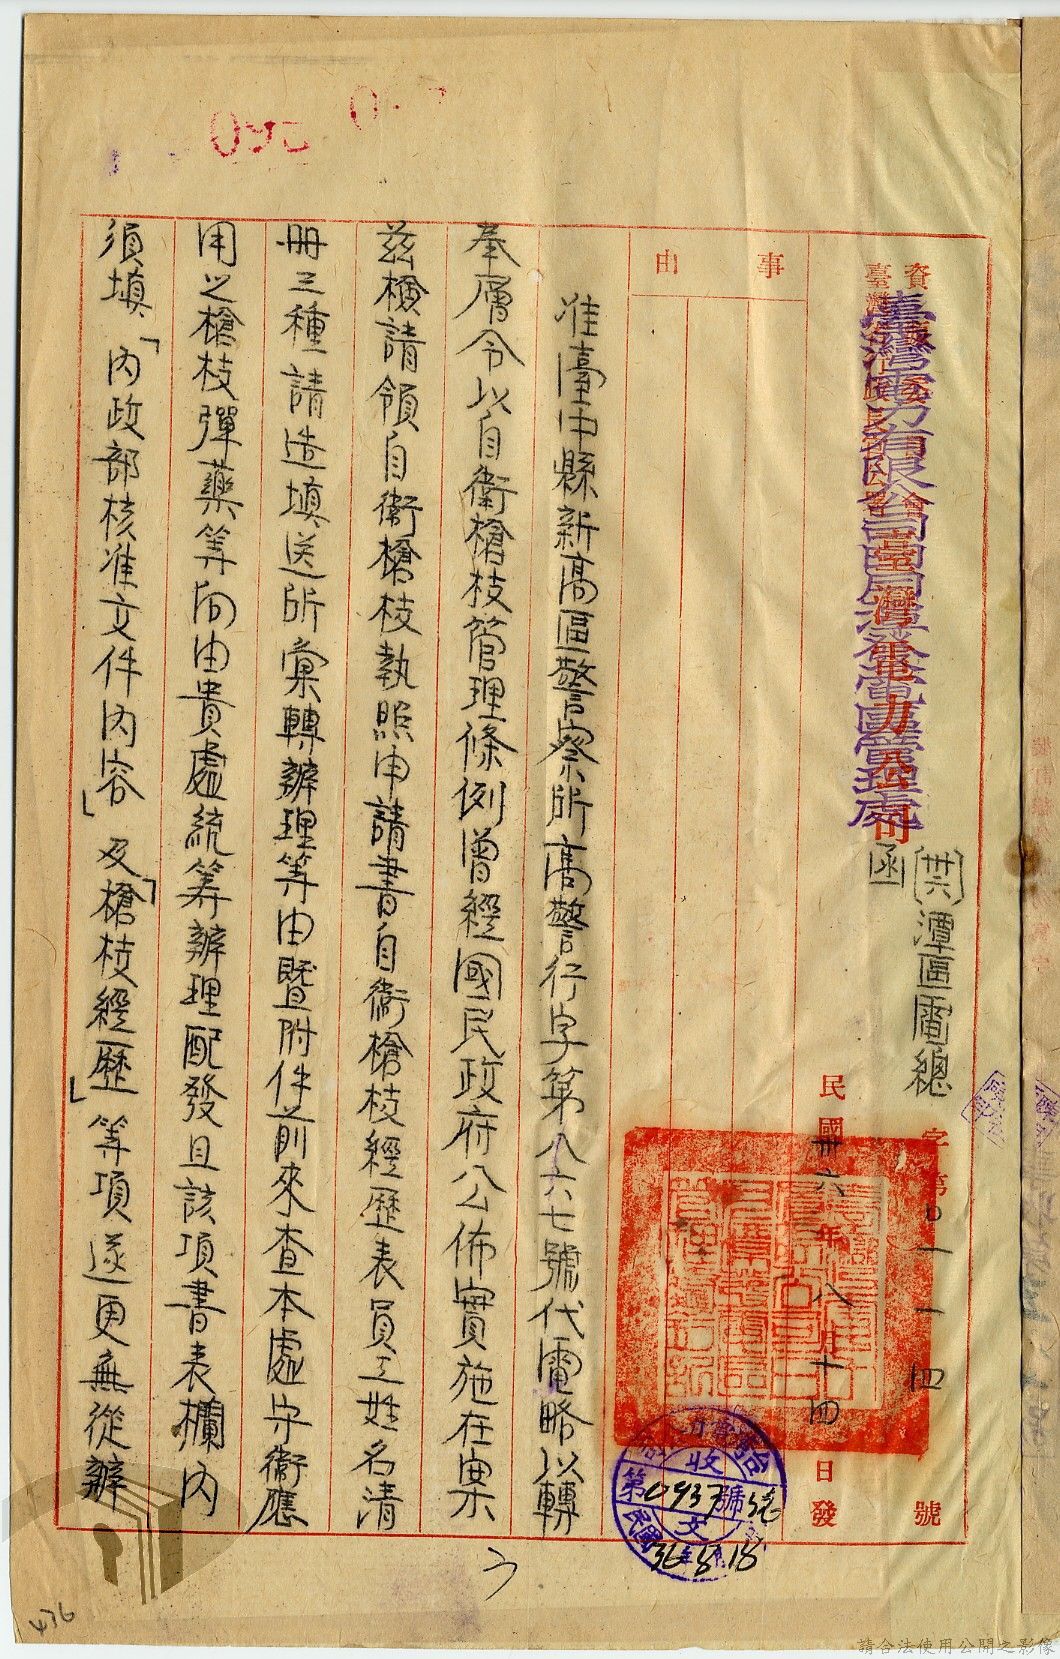 臺灣電力有限公司日月潭發電區管理處
函
〔卅六〕潭區電總字第〇一一四號
民國卅六年八月十四日發
事由
准臺中縣新高區警察所高警行字第八六七號代電略以轉
奉層令以自衛槍枝管理條例曾經國民政府公佈實施在案
茲檢請領自衛槍枝執照申請書自衛槍枝經歷表員工姓名清
冊三種請造填送所彙轉辦理等由暨附件前來查本處守衛應
用之槍枝彈藥等向由貴處統籌辦理配發且該項書表欄內
須填「內政部核准文件內容」及「槍枝經歷」等項遂更無從辦
收文
第0937號
民國36年8月18
436
請合法使用公開之影像